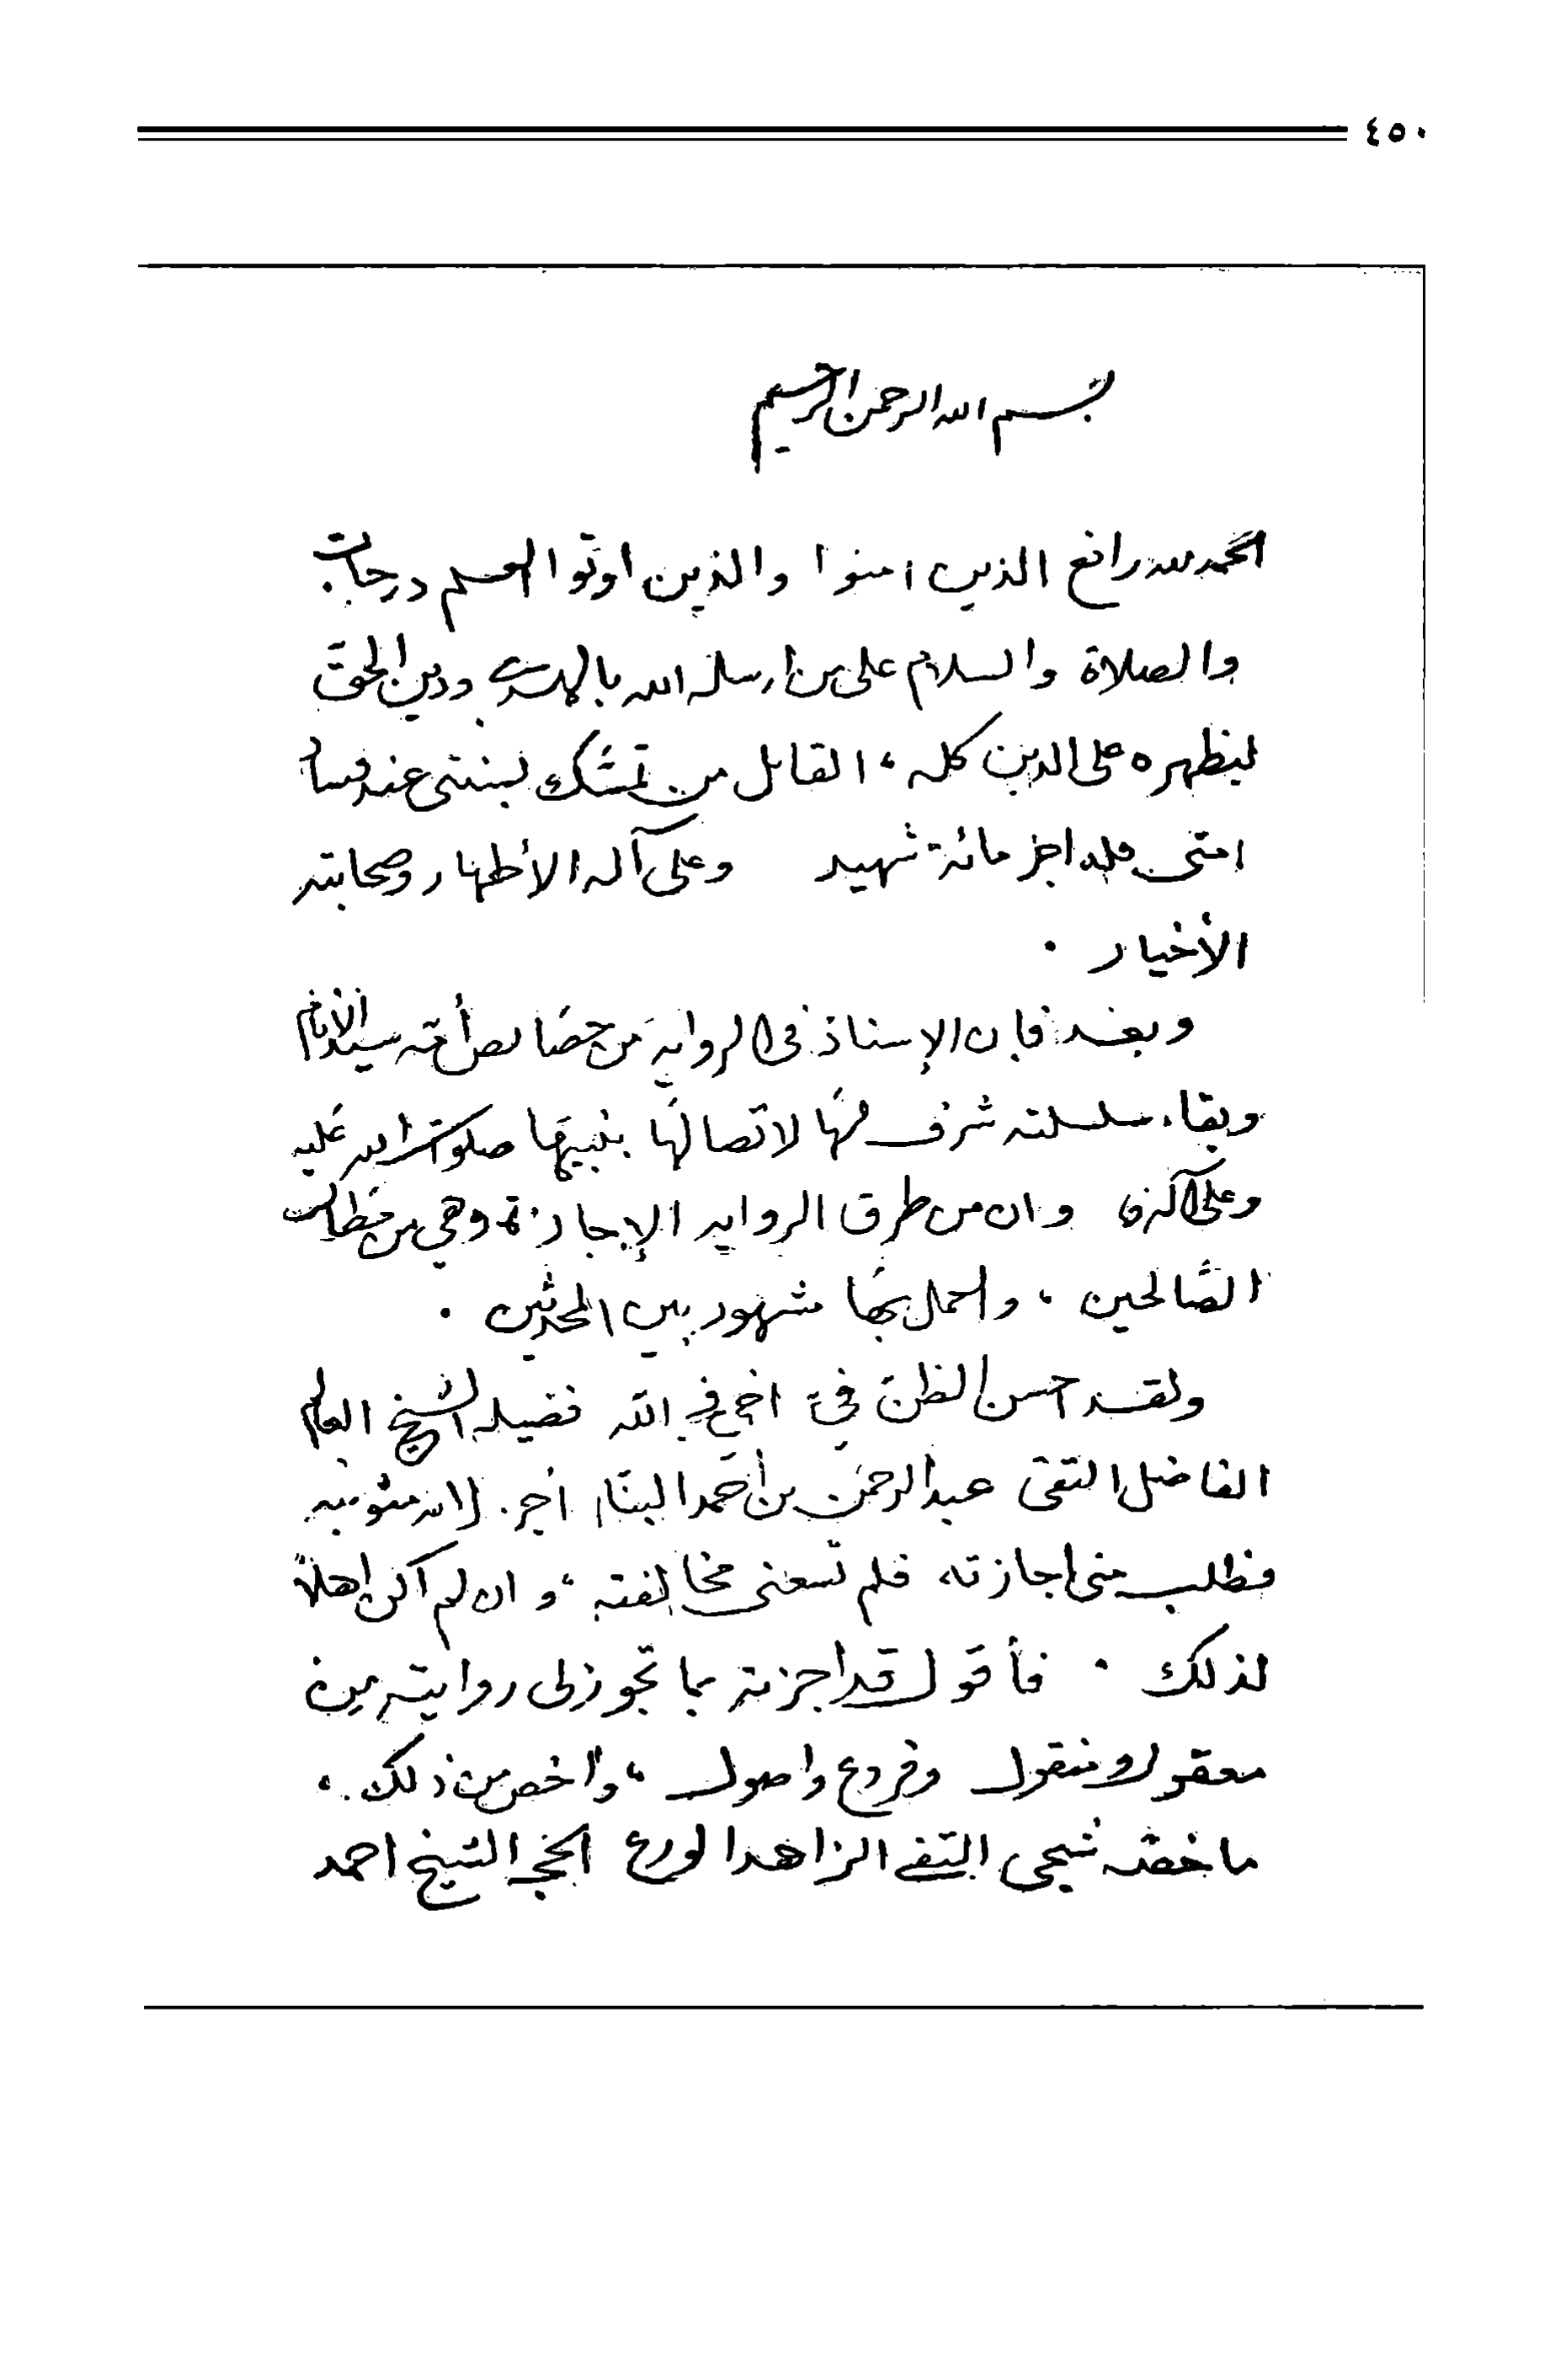 ٤٥٠
بسم الله الرحمن الرحيم
الحمد لله رافع الذين امنوا والذين اوتوا العلم درجات
والصلاة والسلام على من ارسله الله بالهدى ودين الحق
ليظهره على الدين كله، القائل من تمسّك بسنتي عند فساد
امتي فله اجر مائة شهيد وعلى آله الأطهار وصحابته
الأخيار .
وبعد فإن الإسناد في الرواية من خصائص أمة سيد الأنام
وبقاء سلسلته شرف لها لاتصالها بنبيها صلوات الله عليه
وعلى آله وان من طرق الرواية الإجازة وهي من
الصالحين ، والعمل بها مشهور بين المحدثين .
ولقد احسن الظن فيّ اخي في الله فضيلة الشيخ العالم
الفاضل التقى عبد الرحمن بن أحمد البنا أجزل الله مثوبته
فطلب مني اجازته فلم تسعني مخالفته ، وان لم اكن اهلاً
لذلك . فأقول قد اجزته بما تجوز لي روايته من
معقول ومنقول وفروع واصول ، وأخص من ذلك ،
ما خصّه شيخي التقي الزاهد الورع الشيخ احمد